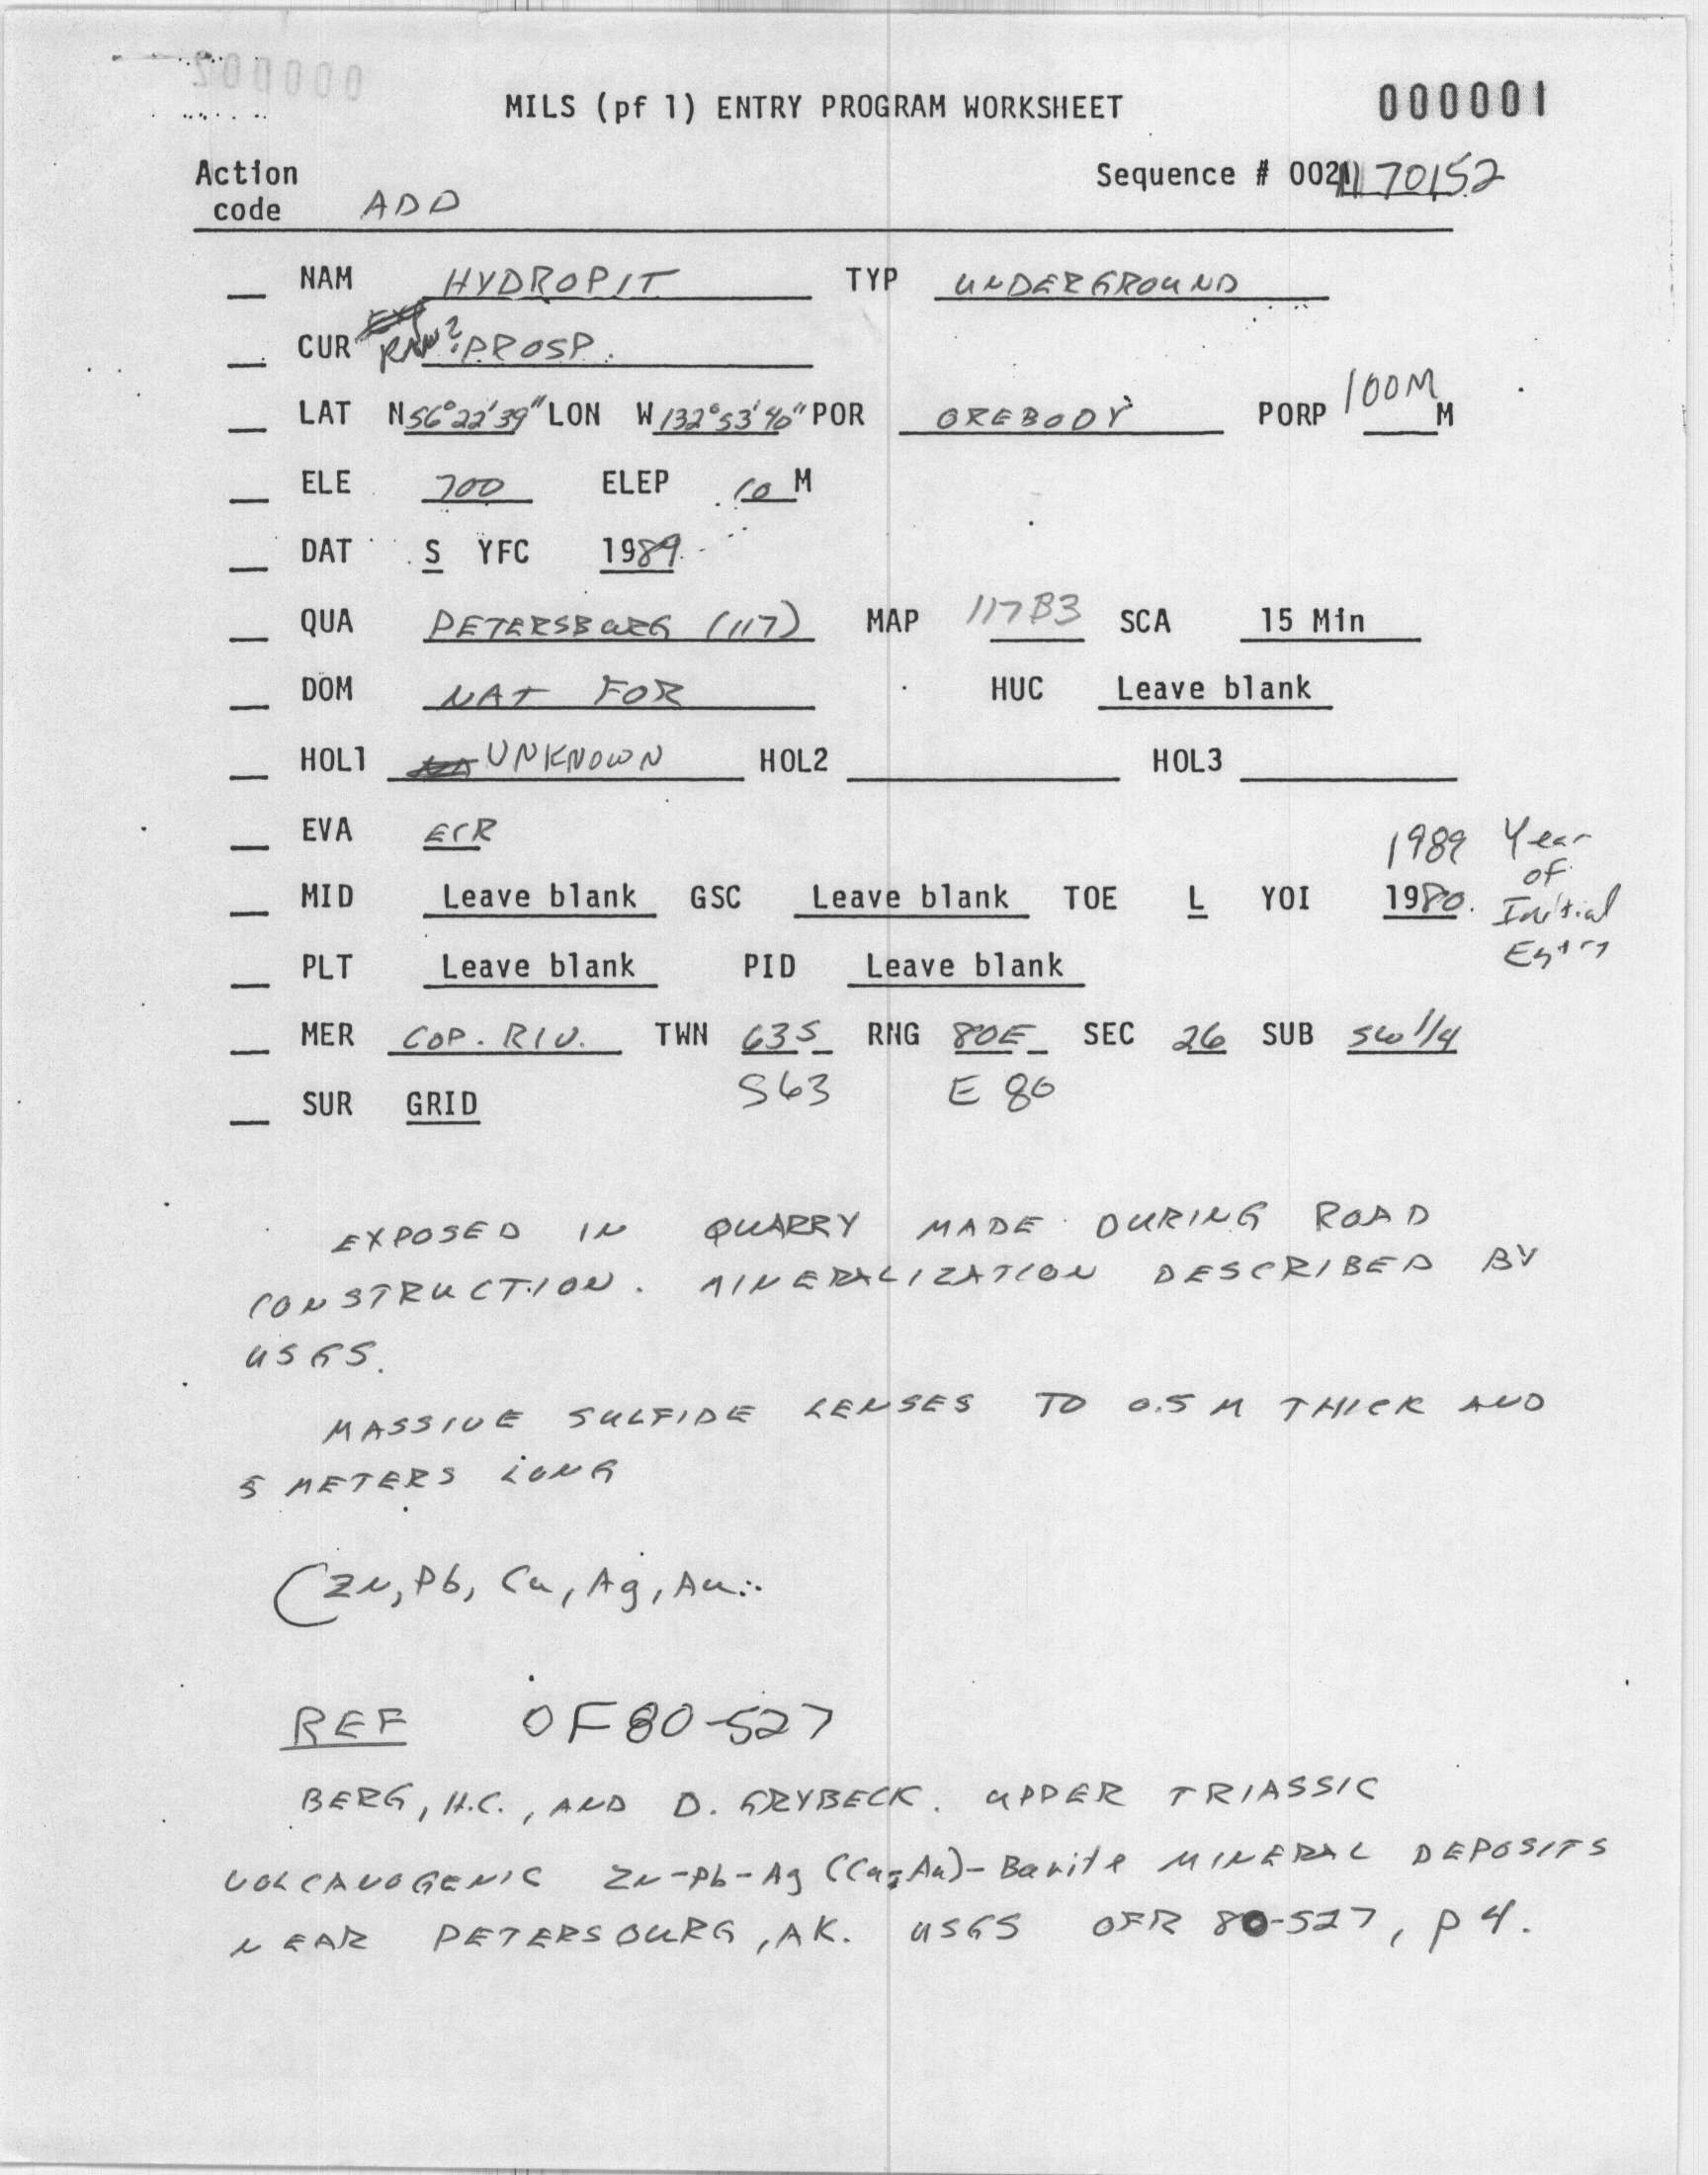 000002
MILS (pf 1) ENTRY PROGRAM WORKSHEET 000001
Action code ADD Sequence # 0021170152
NAM HYDROPIT TYP UNDERGROUND
CUR RAW? PROSP.
LAT N56°22'39" LON W132°53'40" POR OREBODY PORP 100M M
ELE 700 ELEP 10 M
DAT S YFC 1989
QUA PETERSBURG (117) MAP 117B3 SCA 15 Min
DOM NAT FOR HUC Leave blank
HOL1 UNKNOWN HOL2 HOL3
EVA ECR
1989 Year of Initial Entry
MID Leave blank GSC Leave blank TOE L YOI 1980.
PLT Leave blank PID Leave blank
MER COP. RIV. TWN 63S RNG 80E SEC 26 SUB SW 1/4
S63 E 80
SUR GRID
EXPOSED IN QUARRY MADE DURING ROAD
CONSTRUCTION. MINERALIZATION DESCRIBED BY
USGS.
MASSIVE SULFIDE LENSES TO 0.5 M THICK AND
5 METERS LONG
(Zn, Pb, Cu, Ag, Au
REF OF80-527
BERG, H.C., AND D. GRYBECK. UPPER TRIASSIC
VOLCANOGENIC Zn-Pb-Ag (Cu-Au)-Barite MINERAL DEPOSITS
NEAR PETERSBURG, AK. USGS OFR 80-527, p 4.